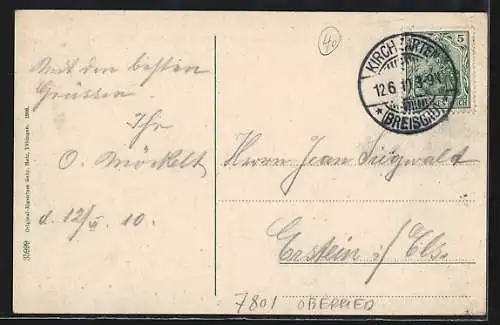 40
5
KIRCHZARTEN
12.6.10
* (BREISGAU) *
REICH
Mit den besten
Grüssen
Ihr
O. Möckelt
d. 12/VI. 10.
Herrn Jean Siegwalt
Erstein i/Els.
Original-Eigentum Gebr. Metz, Tübingen.
7801 OBERRIED